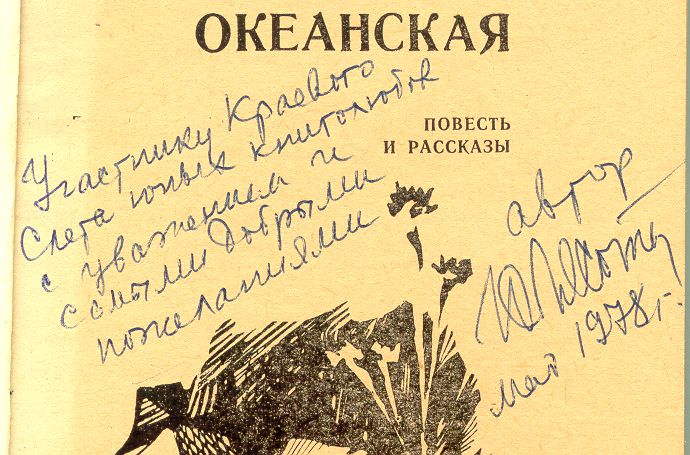 ОКЕАНСКАЯ
ПОВЕСТЬ
И РАССКАЗЫ
Участнику Краевого
Слета юных книголюбов
с уважением и
самыми добрыми
пожеланиями
автор
май 1978 г.